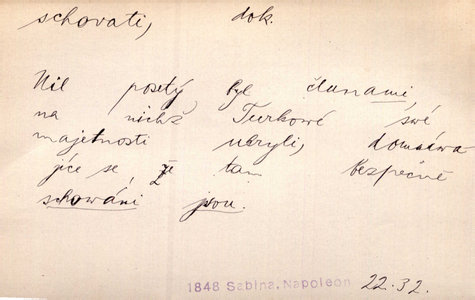 schovati, dok.
Nil posetý byl člunami
na nichž Turkové své
majetnosti ukryli, domníva-
jíce se že tam bezpečně
schováni jsou.
1848 Sabina, Napoleon 22.32.